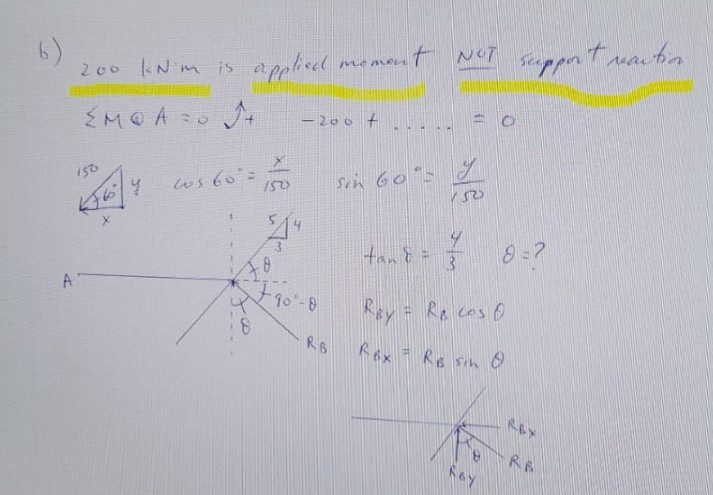 b) 200 kN·m is applied moment NOT support reaction
ΣM@A = 0 ↺+ -200 + ..... = 0
150 60° y x cos 60° = x/150 sin 60° = y/150
5 4 3
tan θ = 4/3 θ = ?
A θ 90°-θ
θ RB
RBY = RB cos θ
RBX = RB sin θ
RBX
θ RB
RBY